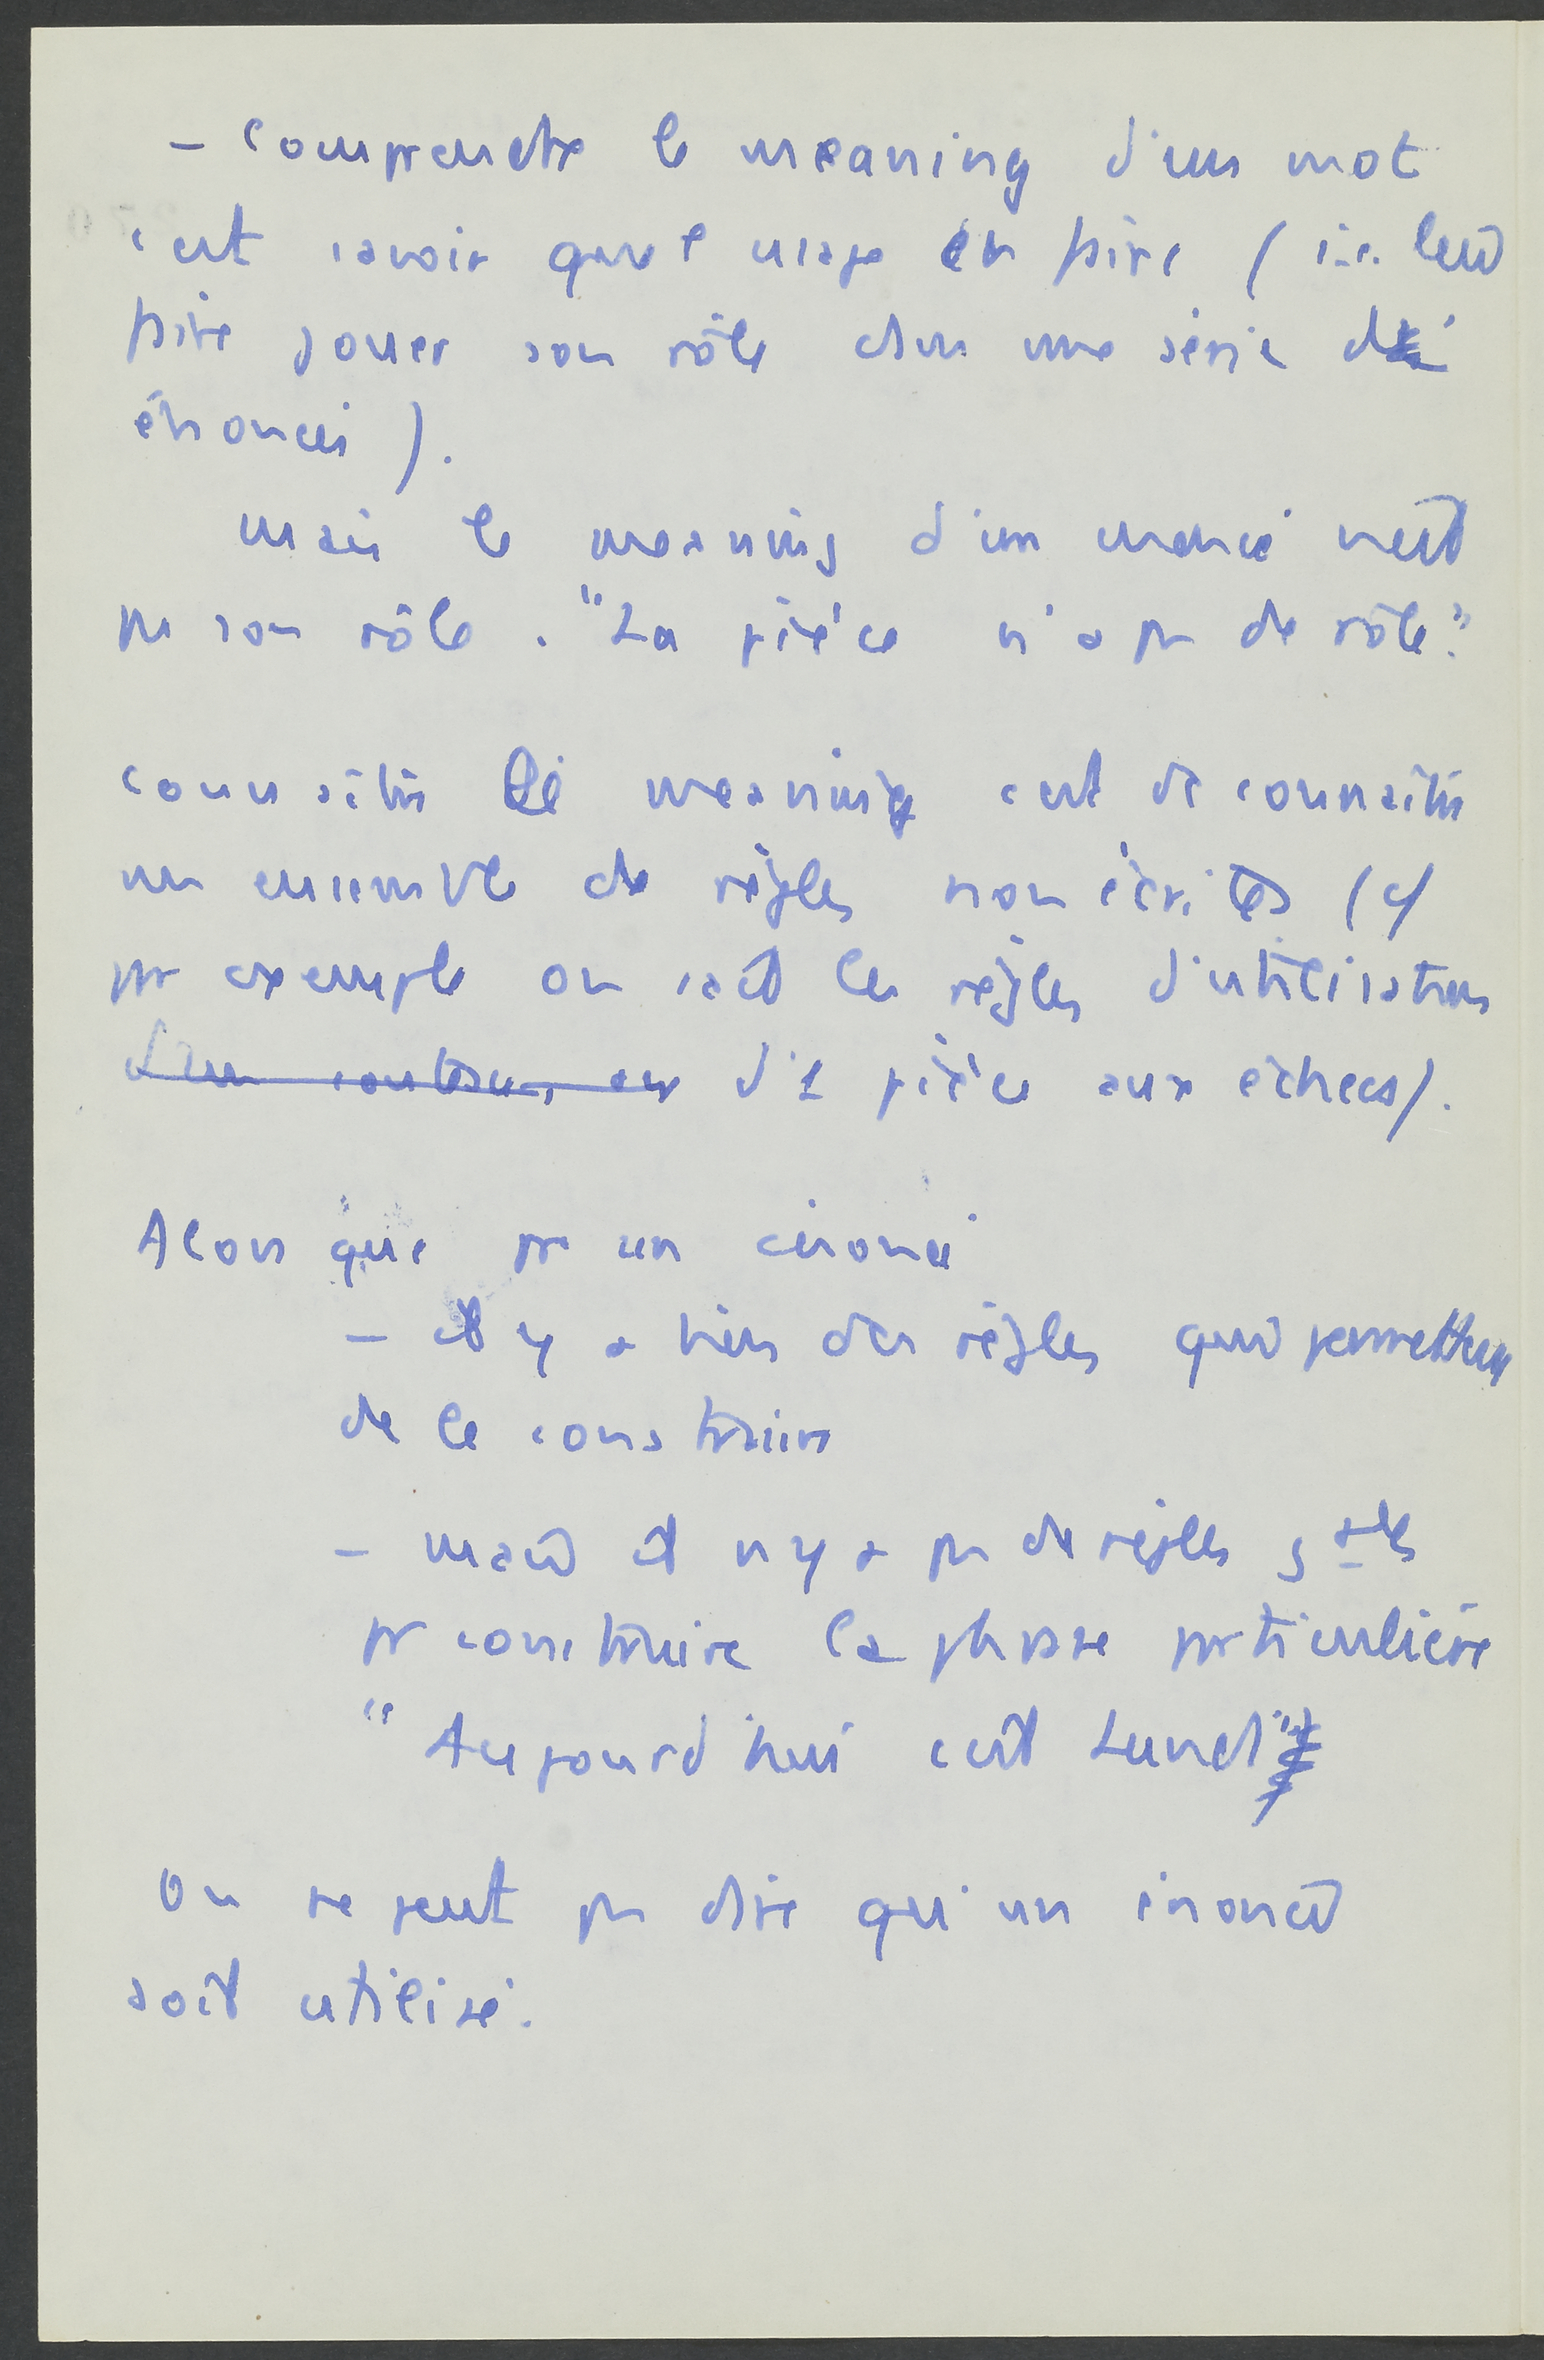 - Comprendre le meaning d'un mot
c'est savoir quel usage en faire (i.e. lui
faire jouer son rôle dans une série d'
énoncés).
Mais le meaning d'un énoncé n'est
pas son rôle. "La pièce n'a pas de rôle".
Connaître le meaning c'est de connaître
un ensemble de règles non écrites (cf
par exemple on sait les règles d'utilisation
d'un couteau, ou d'1 pièce aux échecs).
Alors que pr un énoncé
- il y a bien des règles qui permettent
de le construire
- mais il n'y a pas de règles gales
pr construire la phrase particulière
"Aujourd'hui c'est Lundi"
On ne peut pas dire qu'un énoncé
soit utilisé.